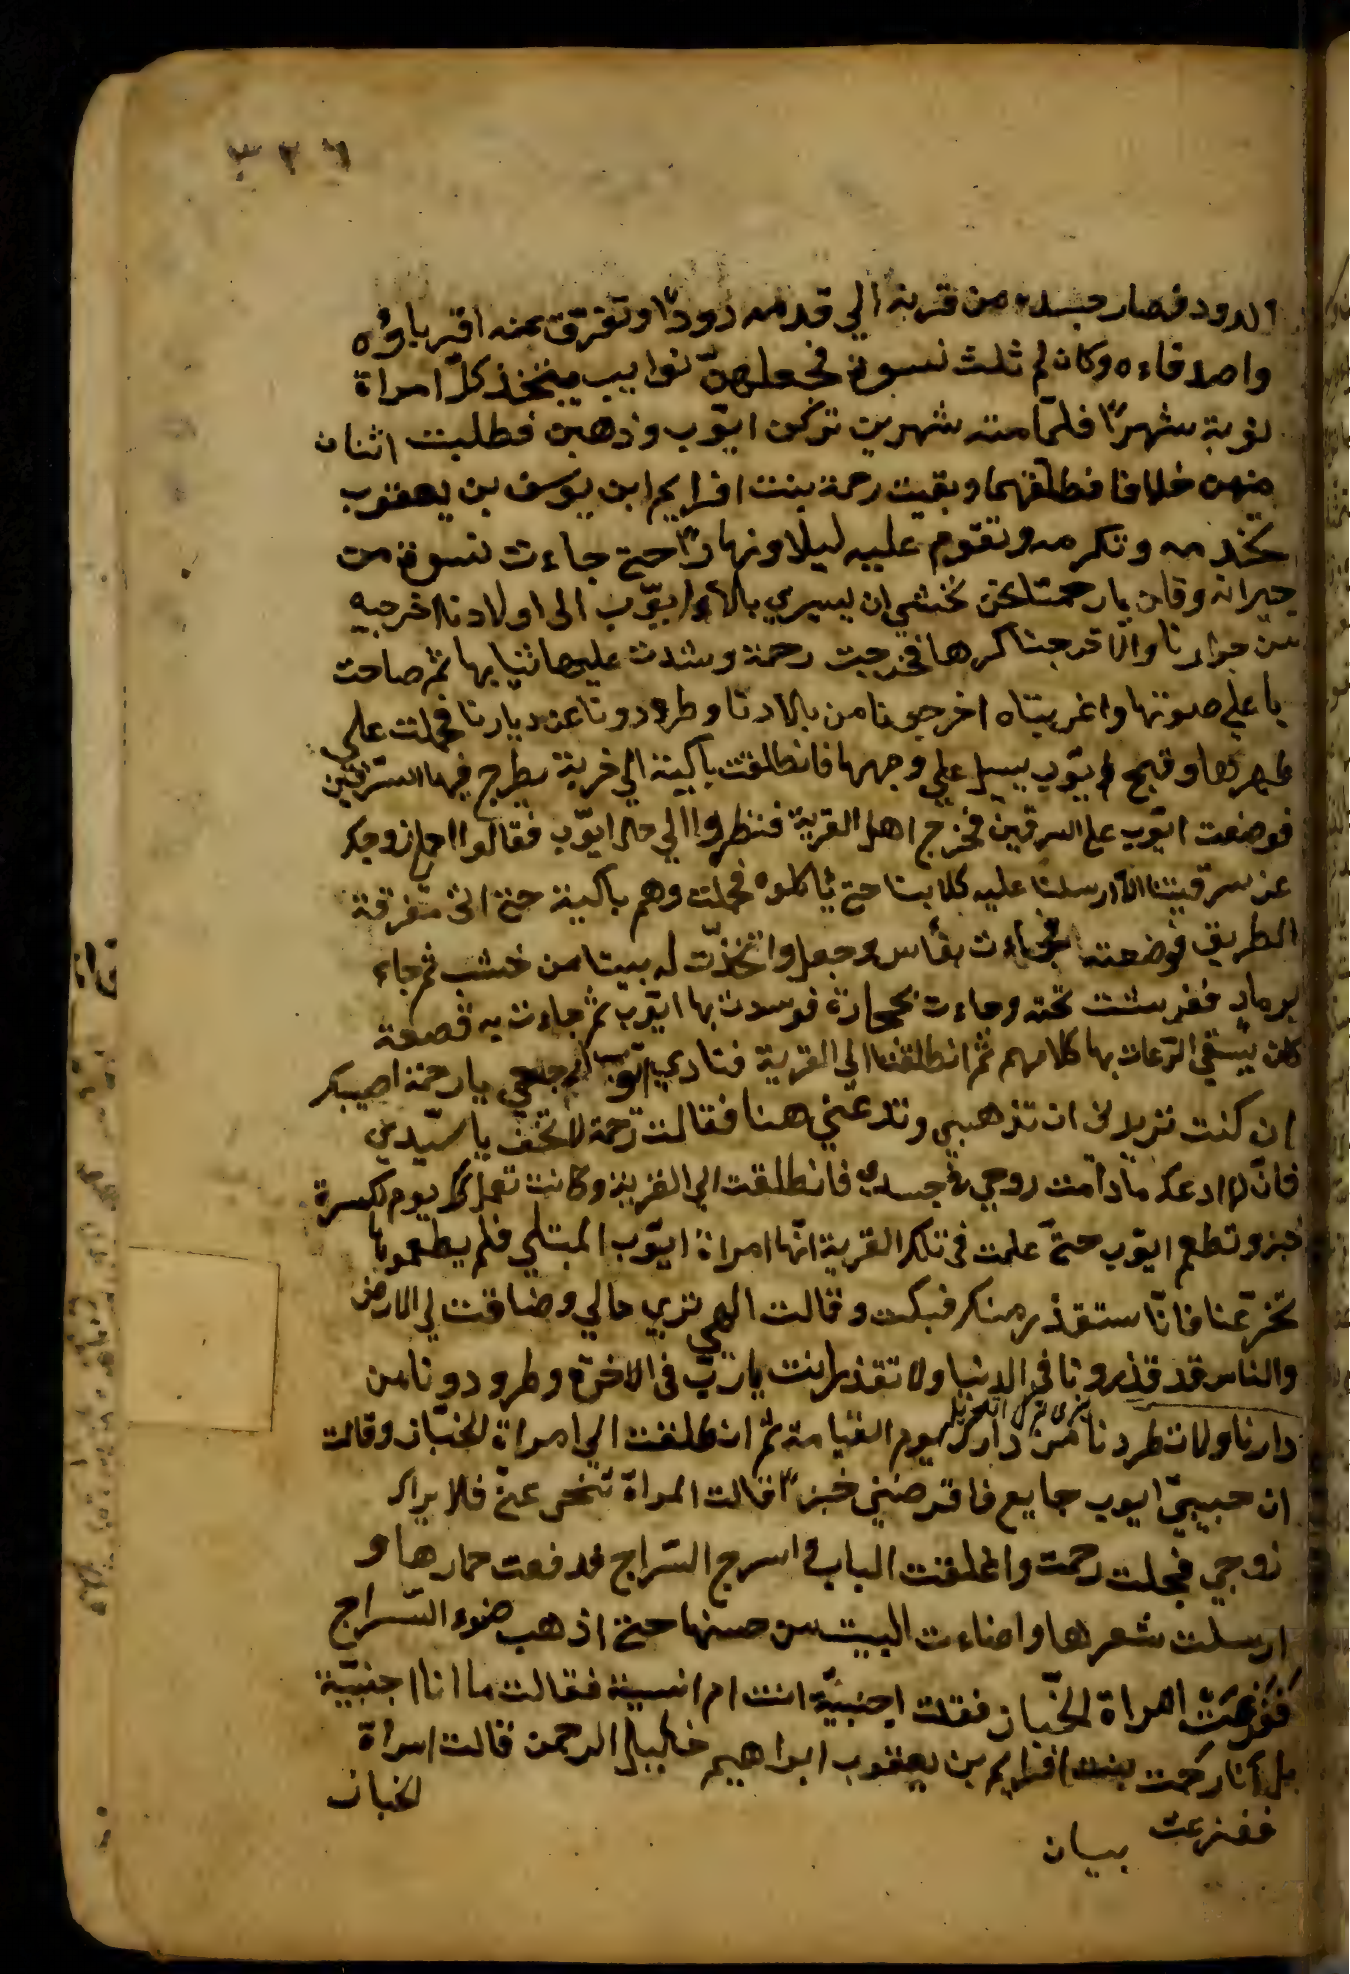 ٣٢٦
الدود فصار جسده من قرنه الي قدمه دودًا وتفرّق عنه اقرباؤه
واصدقاءه وكان له ثلث نسوة فجعلهنّ نوايب يتخذ كلّ امراة
نوبة شهرًا فلمّا مته شهرين تركن ايّوب وذهبن فطلبت اثنان
منهن خلافا فطلّقهما وبقيت رحمة بنت افرايم ابن يوسف بن يعقوب
تخدمه وتكرمه وتقوم عليه ليلا ونهارًا حتي جاءت نسوة من
جيرانه وقلن يا رحمتا نحن نخشي ان يسري بالاء ايّوب الى اولادنا اخرجيه
من جوارنا والا اخرجنا كرها فخرجت رحمة وشدت عليها ثيابها ثم صاحت
باعلي صوتها واغربتاه اخرجونا من بالادنا وطرودونا عن ديارنا فحملت علي
ظهرها وقيح ايّوب يسيل علي وجهها فانطلقت باكية الي خربة يطرح فيها السّرقين
فوضعت ايّوب علي السرقين فخرج اهل القرية فنظروا الي حال ايّوب فقالوا احمل زوجك
عن سرقيننا الا ارسلنا عليه كلابنا حتي يأكلوه فحملت وهم باكية حتي اتى مفرقة
الطريق فوضعته فجاءت بفأس وحبل واتخذّت له بيتا من خشب ثم جاء
برماد ففرشت تحته وجاءت بحجارة فوسدت بها ايّوب ثم جاءت به قصعة
كان يسقي الرّعات بها كلابهم ثم انطلقت الي القرية فنادي ايّوب ارجعي يا رحمة اصيبك
ان كنت تريد ان تذهبي وتدعني هنا فقالت رحمة لا تخف يا سيّدي
فانّ لا ادعك ما دامت روحي في جسدي فانطلقت الي القرية وكانت تعمل كل يوم لكسرة
خبز وتطعم ايّوب حتّي علمت في تلك القرية انّها امراة ايّوب المبتلي فلم يطعموها
تخّر عنا فانّا ستقذر منك فبكت وقالت الهي تري حالي وضاقت لي الارض
والناس قد قذرونا في الدنيا ولا تقذر انت يا ربّ في الاخرة وطرودونا من
دارنا ولا تطردنا من دارك يوم القيامة ثم انطلقت الي امراة الخبّاز وقالت
ان حبيبيّ ايوب جايع فاقرضني خبزًا فقالت المراة تنحي عنّي فلا يراك
زوجي فجلت رحمت واغلقت الباب واسرج السّراج فدفعت خمارها و
ارسلت شعرها واضاءت البيت من حسنها حتي اذهب ضوء السّراج
ففزعت امراة الخبّاز فقلت اجنبيّة انت ام انسية فقالت ما انا اجنبيّة
بل انا رحمت بنت افرايم بن يعقوب ابراهيم خاليل الرحمن قالت امراة
الخباز
ففزعت
بيان